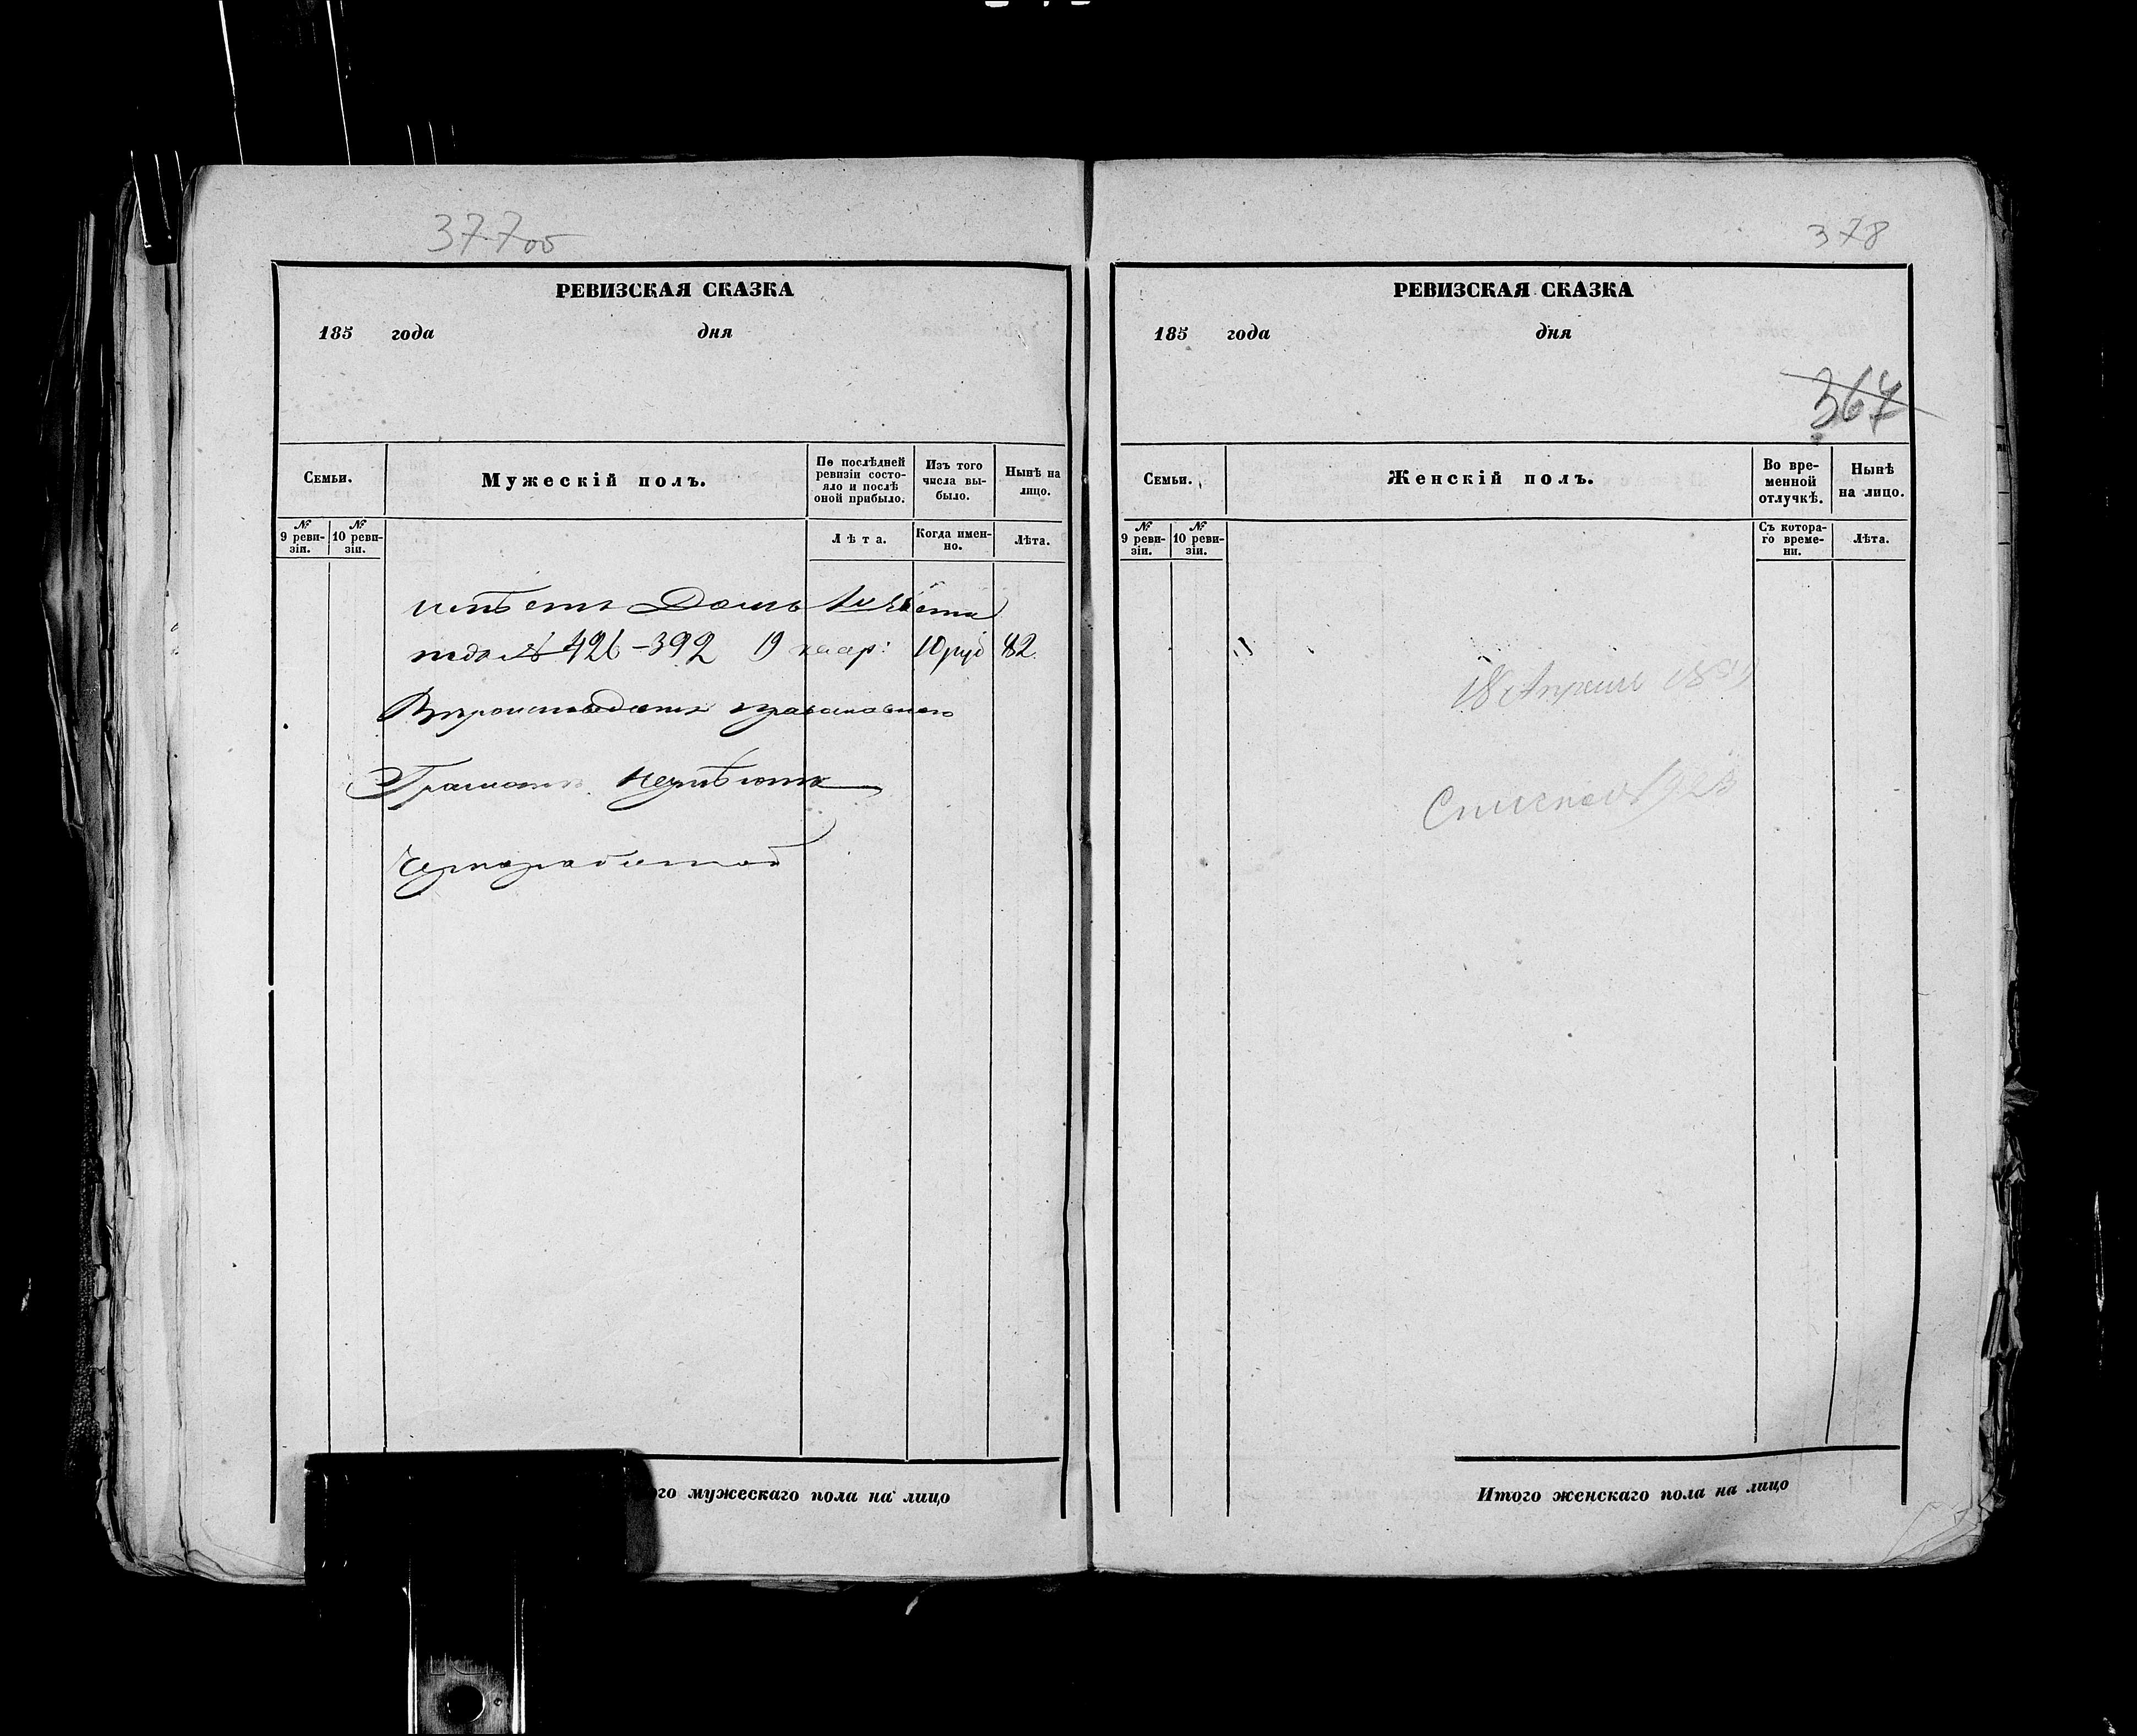 377об
РЕВИЗСКАЯ СКАЗКА
185 года дня
Семьи.
Мужескій полъ.
По послѣдней ревизіи состо-
яло и послѣ оной прибыло.
Изъ того числа вы-
было.
Нынѣ на лицо.
№ 9 реви-
зіи.
№ 10 реви-
зіи.
Лѣта.
Когда имен-
но.
Лѣта.
имѣетъ Домъ
подъ № 426-392 19 квар: 10 руб 82
Вѣроисповѣданія православнаго
Грамотѣ неумѣютъ
Чернорабочій
го мужескаго пола на лицо
378
РЕВИЗСКАЯ СКАЗКА
185 года дня
367
Семьи.
Женскій полъ.
Во вре-
менной отлучкѣ.
Нынѣ на лицо.
№ 9 реви-
зіи.
№ 10 реви-
зіи.
Съ котора-
го време-
ни.
Лѣта.
18 Апрѣля
Итого женскаго пола на лицо